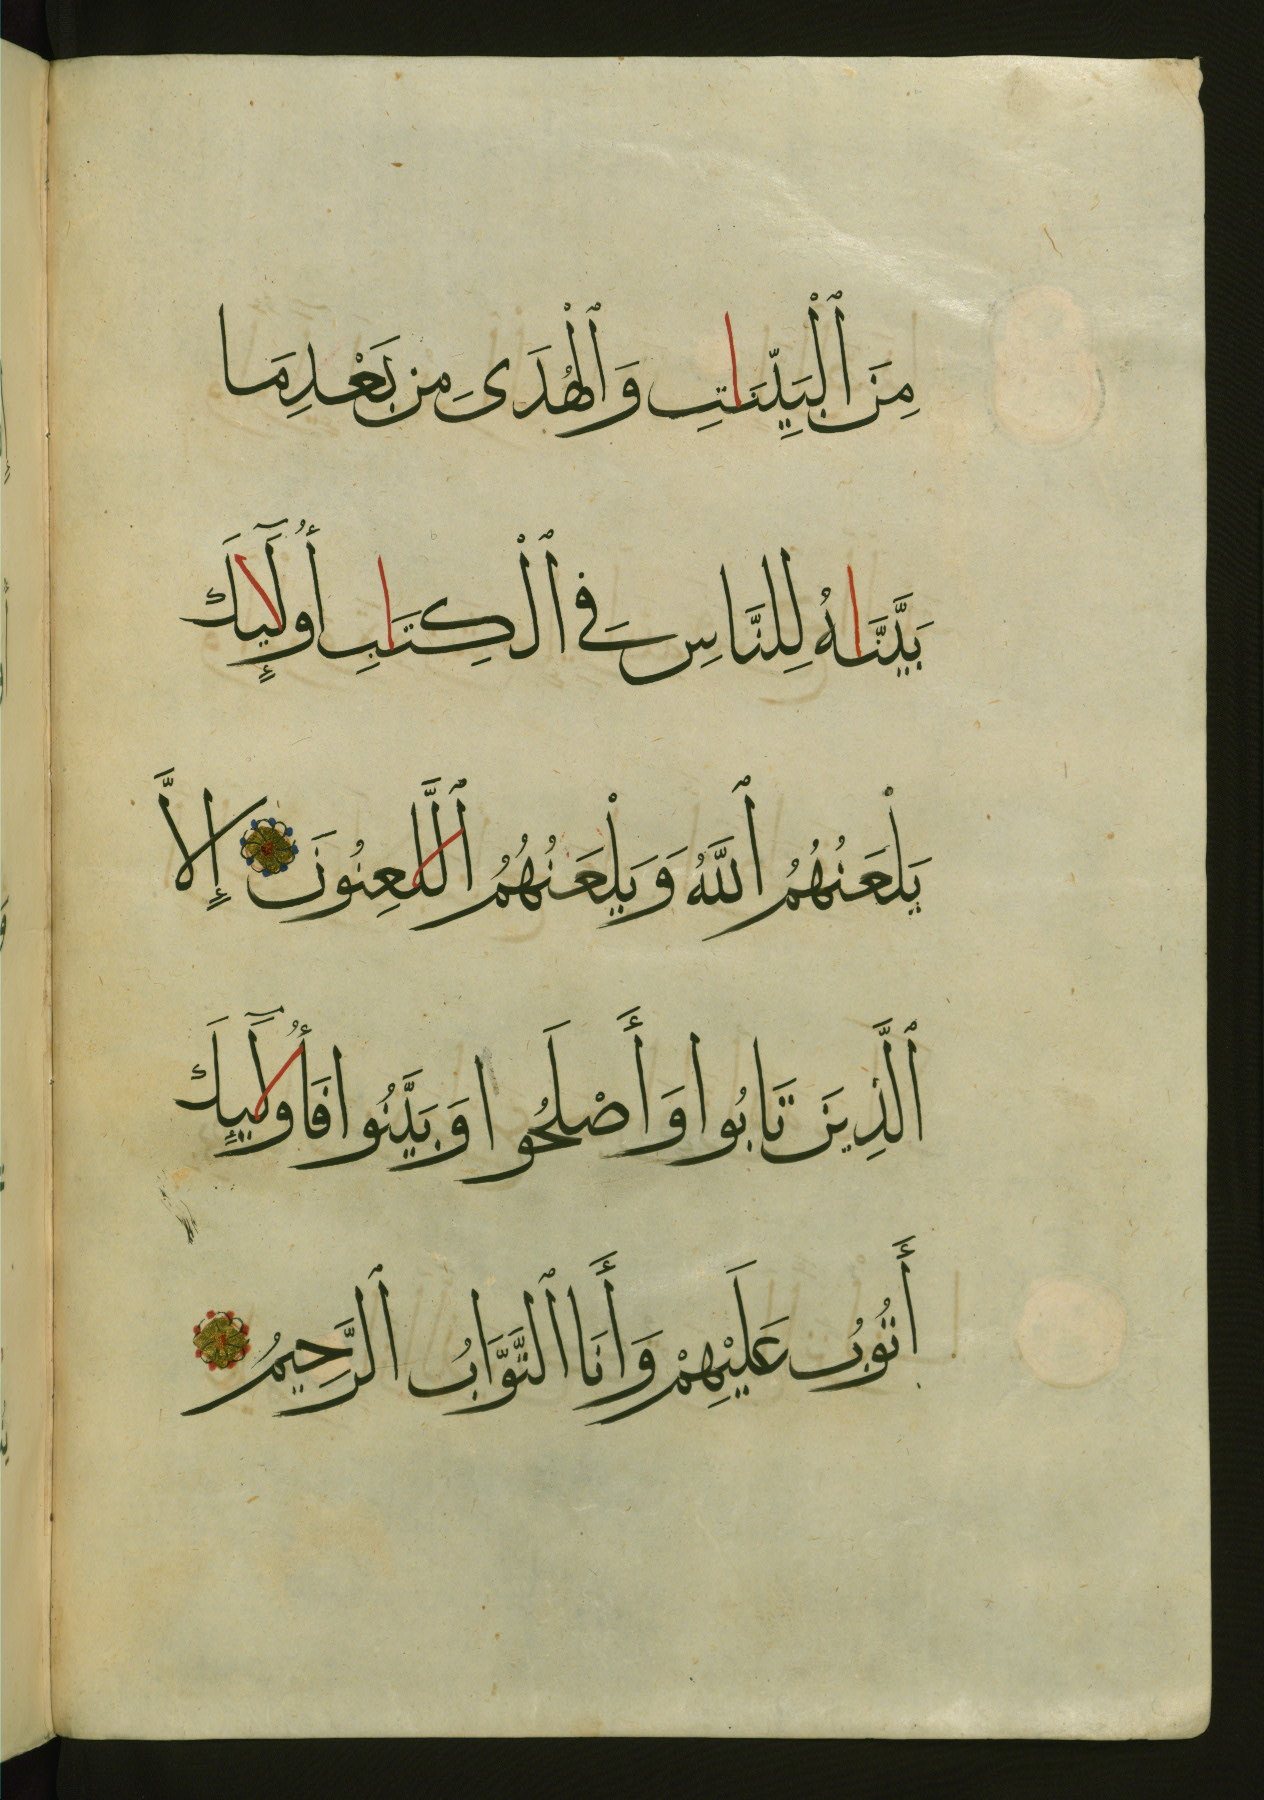 مِنَ ٱلْبَيِّنَاتِ وَٱلْهُدَىَ مِن بَعْدِ مَا
بَيَّنَّاهُ لِلنَّاسِ فَے ٱلْكِتَابِ أُوْلَٰٓئِكَ
يَلْعَنُهُمُ ٱللَّهُ وَيَلْعَنُهُمُ ٱللَّٰعِنُونَ إِلَّا
ٱلَّذِينَ تَابُوا وَأَصْلَحُوا وَبَيَّنُوا فَأُوْلَٰٓئِكَ
أَتُوبُ عَلَيْهِمْ وَأَنَا ٱلتَّوَّابُ ٱلرَّحِيمُ